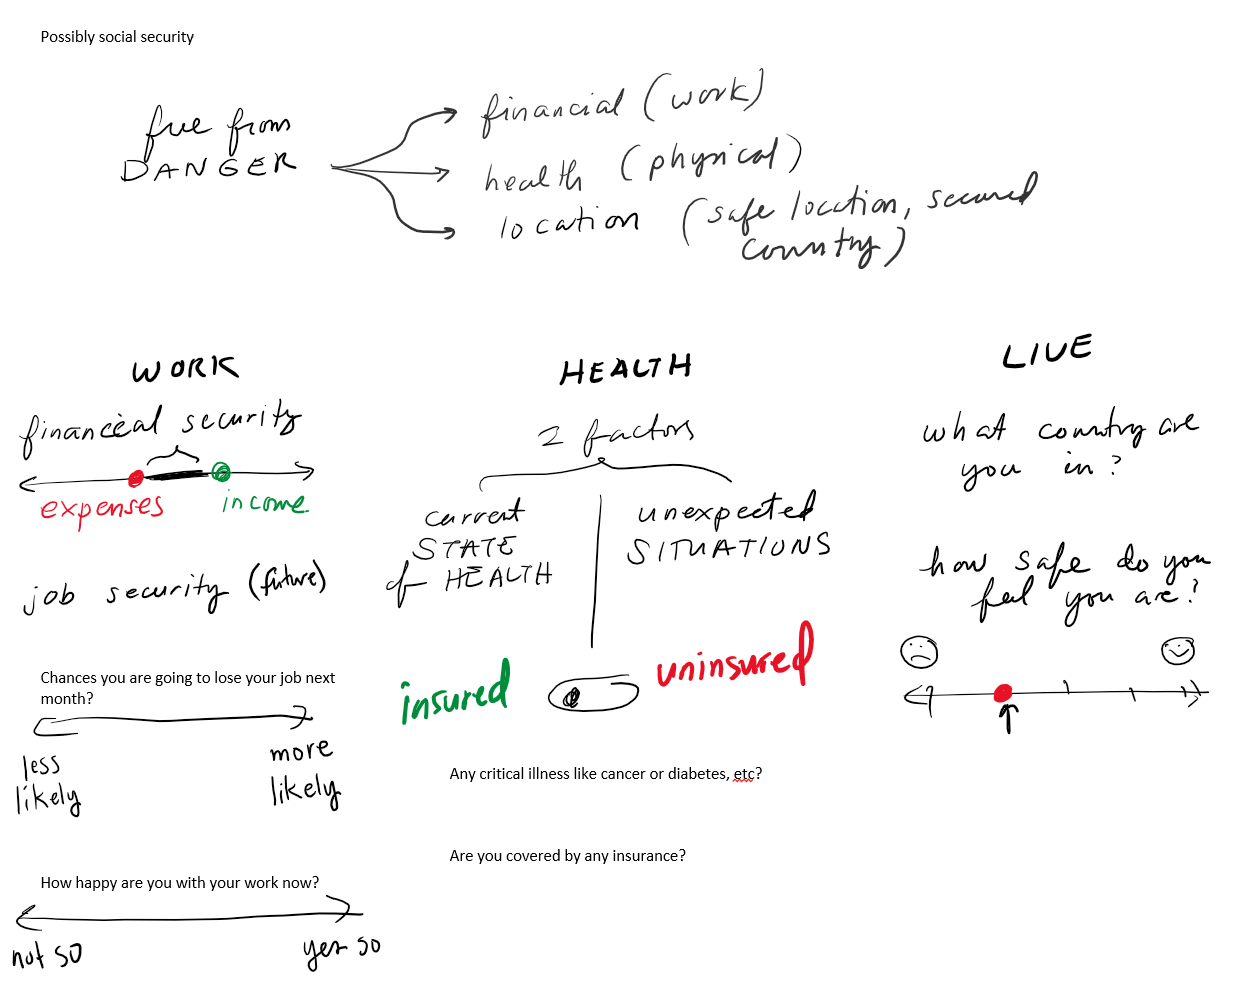 Possibly social security
free from
DANGER
financial (work)
health (physical)
location (safe location, secured
country)
WORK
financial security
expenses
income
job security (future)
Chances you are going to lose your job next
month?
less
likely
more
likely
How happy are you with your work now?
not so
yes so
HEALTH
2 factors
current
STATE
of HEALTH
unexpected
SITUATIONS
insured
uninsured
Any critical illness like cancer or diabetes, etc?
Are you covered by any insurance?
LIVE
what country are
you in?
how safe do you
feel you are?